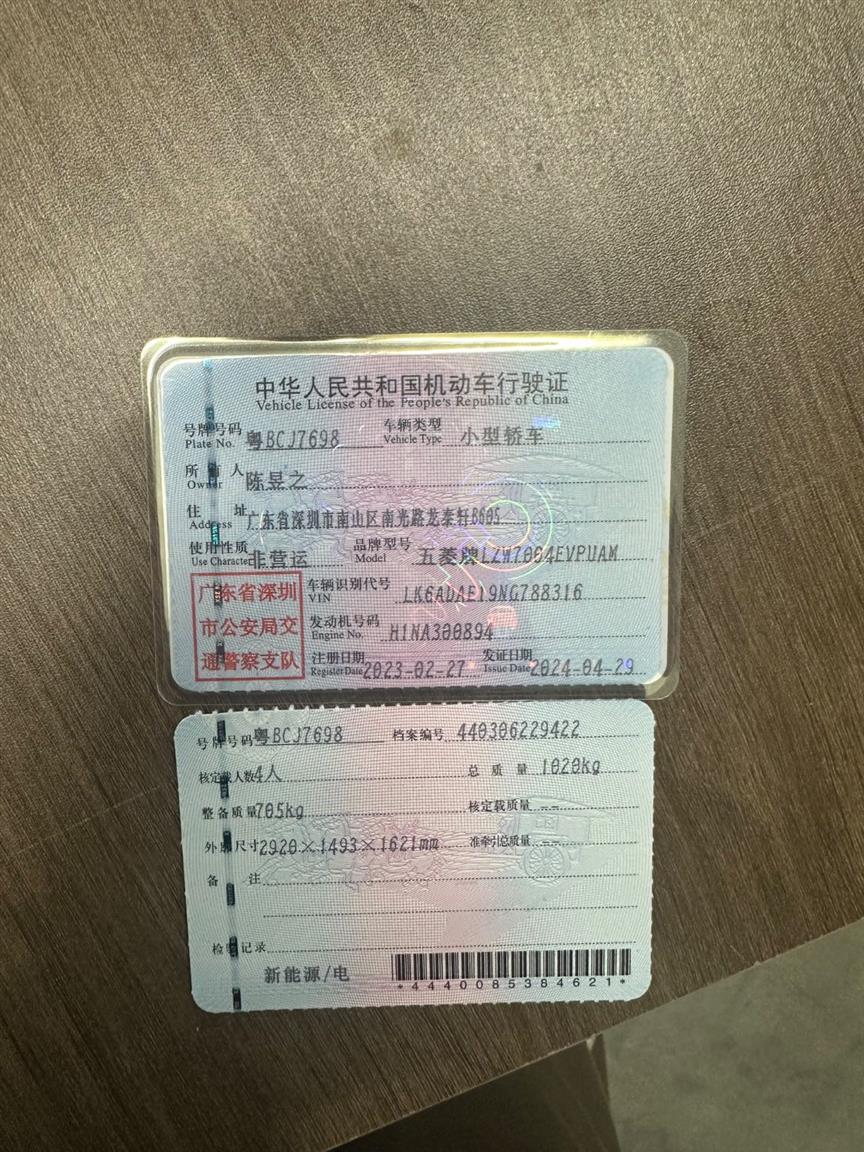 中华人民共和国机动车行驶证
Vehicle License of the People's Republic of China
号牌号码 粤BCJ7698 车辆类型 小型轿车
Plate No. Vehicle Type
所有人 陈昱之
Owner
住址 广东省深圳市南山区南光路龙泰轩B605
Address
使用性质 非营运 品牌型号 五菱牌LZW7004EVPUAM
Use Character Model
广东省深圳
市公安局交
通警察支队
车辆识别代号 LK6ADAE19NG788316
VIN
发动机号码 H1NA300894
Engine No.
注册日期 2023-02-27 发证日期 2024-04-29
Register Date Issue Date
号牌号码 粤BCJ7698 档案编号 440306229422
核定载人数 4人 总质量 1020kg
整备质量 705kg 核定载质量 --
外廓尺寸 2920×1493×1621mm 准牵引总质量 --
备注
检验记录
新能源/电
*4440085384621*